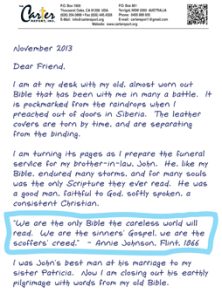 The Carter REPORT, INC.
P.O. Box 1900
Thousand Oaks, CA 91358 USA
P.O. Box 861
Terrigal NSW 2260 AUSTRALIA
November 2013
Dear Friend,
I am at my desk with my old, almost worn out
Bible that has been with me in many a battle. It
is pockmarked from the raindrops when I
preached out of doors in Siberia. The leather
covers are torn by time, and are separating
from the binding.
I am turning its pages as I prepare the funeral
service for my brother-in-law, John. He, like my
Bible, endured many storms, and for many souls
was the only Scripture they ever read. He was
a good man, faithful to God, softly spoken, a
consistent Christian.
"We are the only Bible the careless world will
read. We are the sinners' Gospel, we are the
scoffers' creed." - Annie Johnson, Flint, 1866
I was John's best man at his marriage to my
sister Patricia. Now I am closing out his earthly
pilgrimage with words from my old Bible.